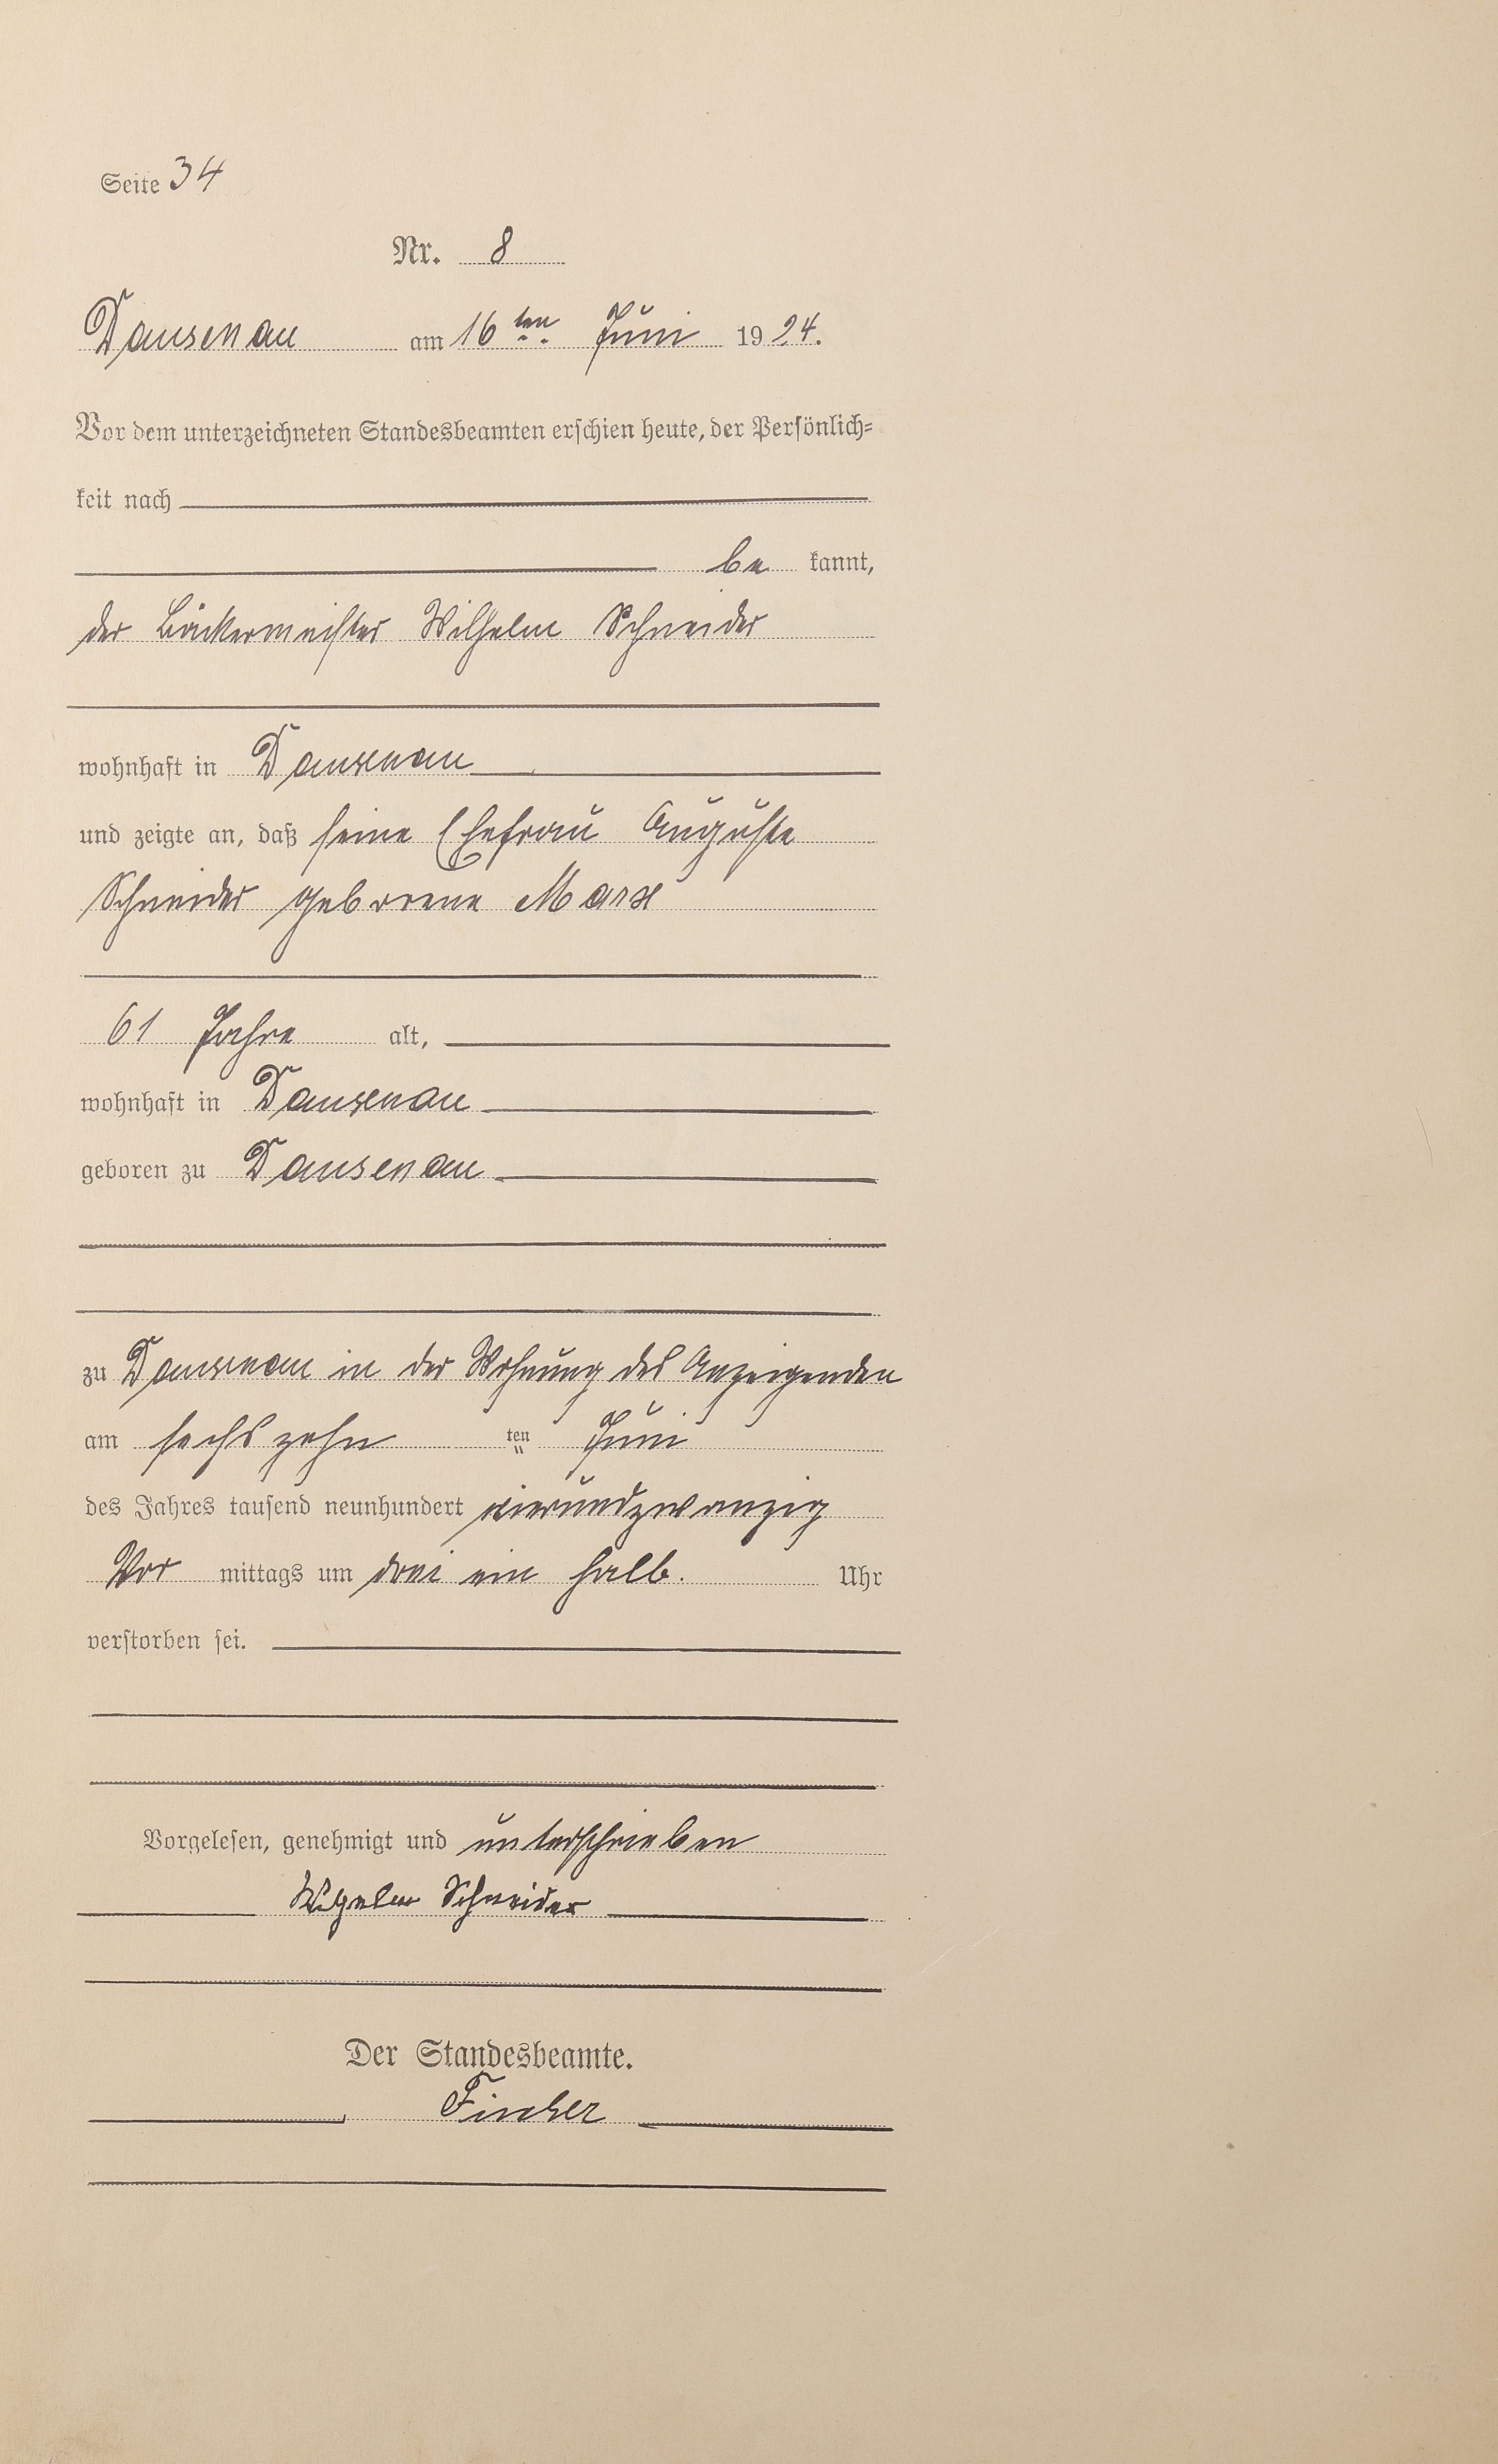 Seite 34
Nr. 8
Dausenau am 16ten Juni 1924.
Vor dem unterzeichneten Standesbeamten erschien heute, der Persönlich=
keit nach
be kannt,
der Bäckermeister Wilhelm Schneider
wohnhaft in Dausenau
und zeigte an, daß seine Ehefrau Auguste
Schneider geborene Marx
61 Jahre alt,
wohnhaft in Dausenau
geboren zu Dausenau
zu Dausenau in der Wohnung des Anzeigenden
am sechszehn ten Juni
des Jahres tausend neunhundert vierundzwanzig
Vor mittags um drei ein halb. Uhr
verstorben sei.
Vorgelesen, genehmigt und unterschrieben
Wilhelm Schneider
Der Standesbeamte.